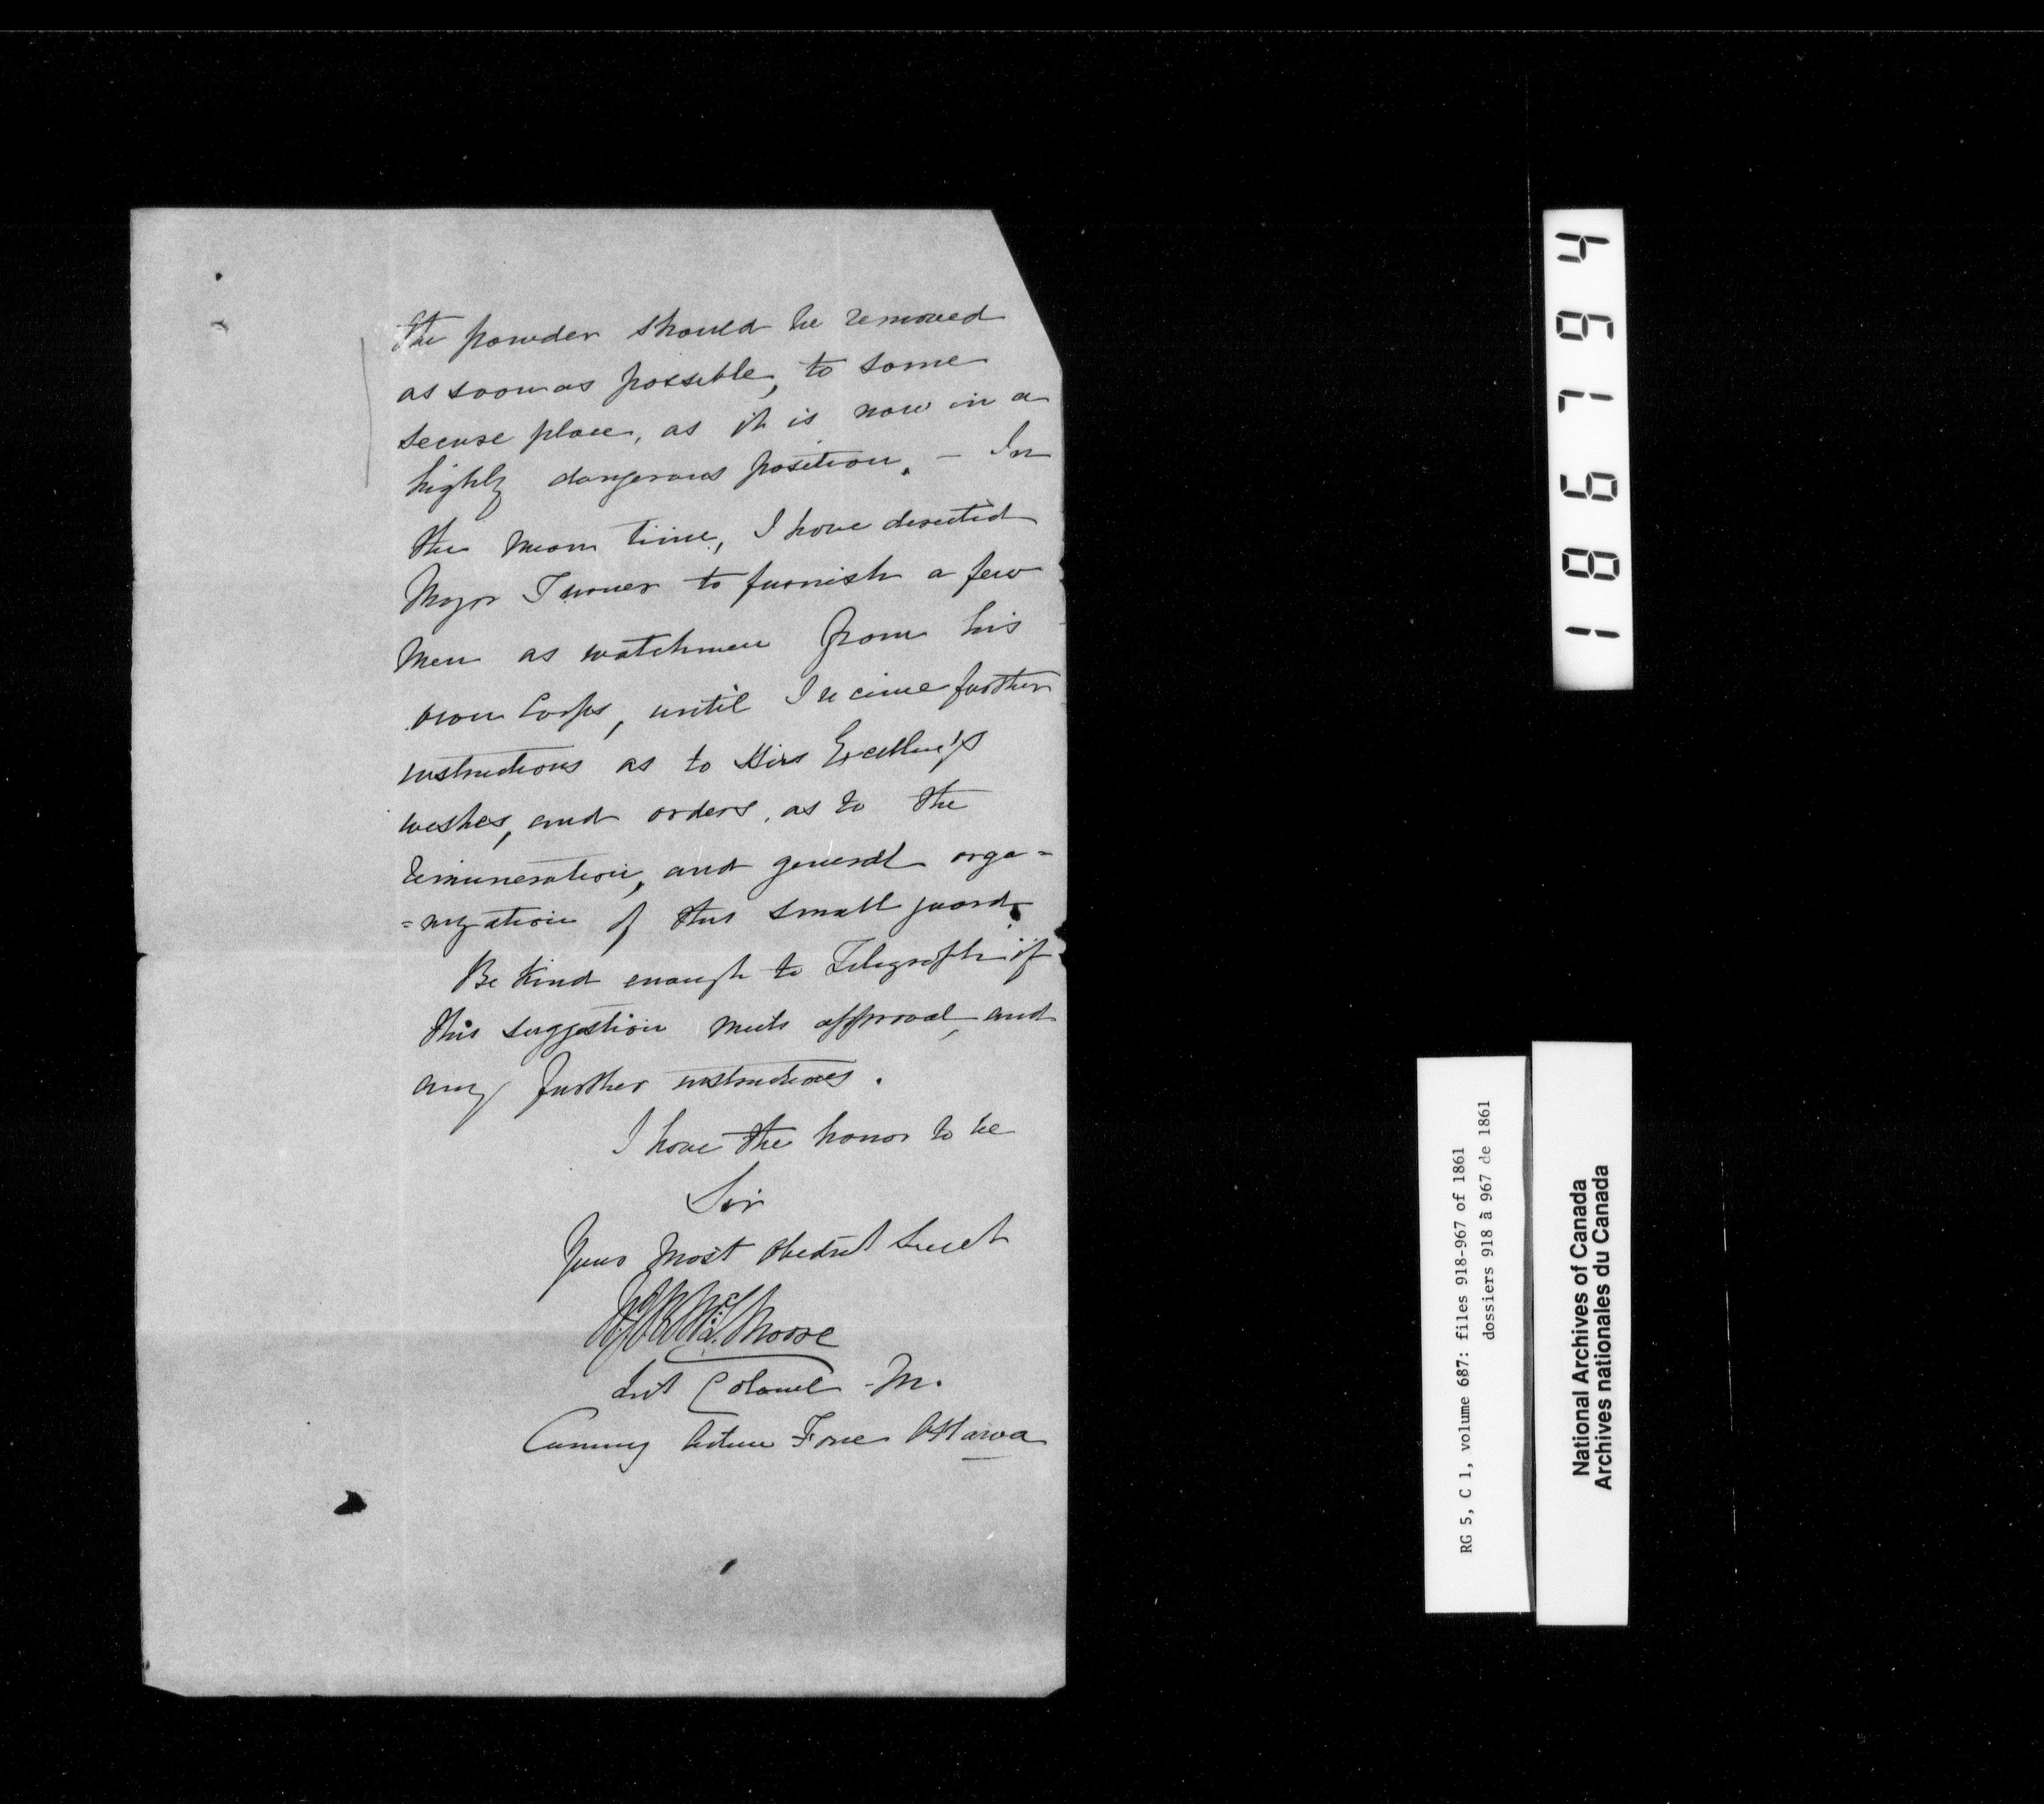 the powder should be removed
as soon as possible, to some
secure place, as it is now in a
highly dangerous position. – In
the mean time, I have directed
Major Turner to furnish a few
Men as watchmen from his
own Corps, until I receive further
instructions as to His Excellency's
wishes, and orders, as to the
remuneration, and general orga=
=nization of this small guard.
Be kind enough to Telegraph if
this suggestion meets approval, and
any further instructions.
I have the honor to be
Sir
Your Most Obedient Servt
Moore
Lieut Colonel - M.
Comm'g Active Force Ottawa
186794
RG 5, C 1, volume 687: files 918-967 of 1861
dossiers 918 à 967 de 1861
National Archives of Canada
Archives nationales du Canada